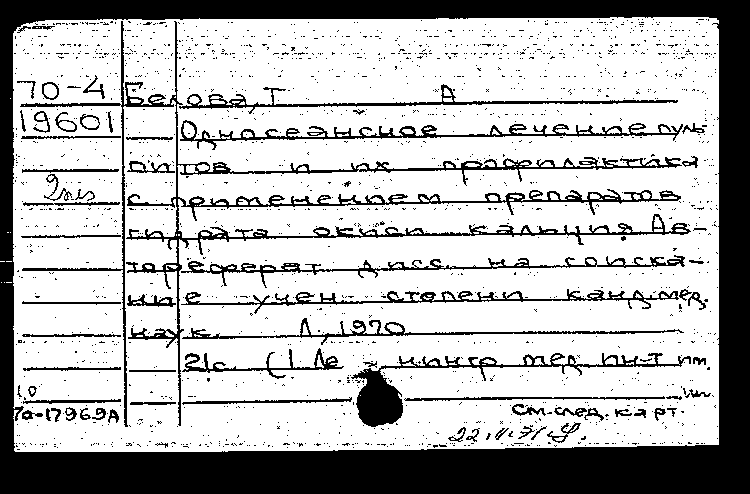 70-4 Белова, Т А
19601 Односеансное лечение пуль
питов и их профилактика
2 bis с применением препаратов
гидрата окиси кальция. Ав-
тореферат дисс. на соиска-
ние учен. степени канд. мед.
наук. Л., 1970
21с. (1 Ле - нингр. мед. ин-т им.
10
7а-17969А см. след. карт.
22.II.71.